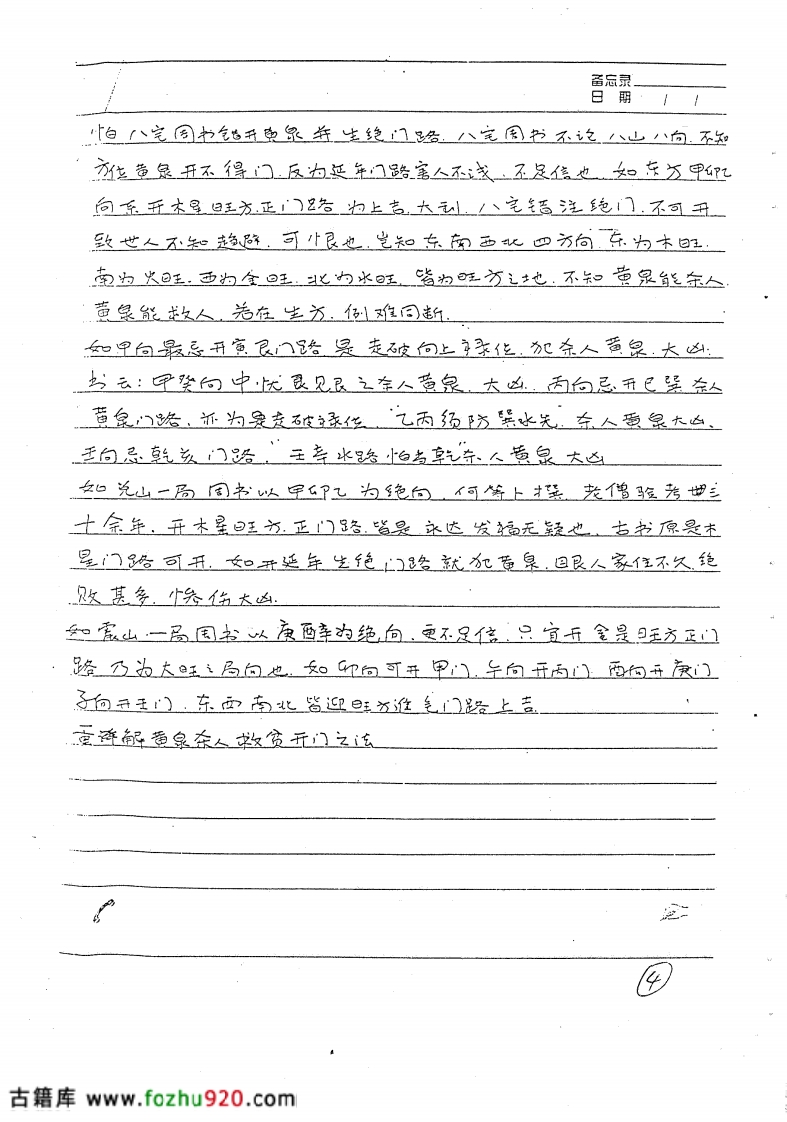 备忘录
日 期 / /
怕八宅周书错开黄泉并生绝门路.八宅周书不论八山八向.不知
方位黄泉开不得门.反为延年门路害人不浅.不足信也.如东方甲卯乙
向系开木星旺方.正门路为上吉.大利.八宅错注绝门.不可开
致世人不知趋避.可恨也.岂知东南西北四方向.东为木旺.
南为火旺.西为金旺.北为水旺.皆为旺方之地.不知黄泉能杀人.
黄泉能救人.若在生方.例难同断.
如甲向最忌开寅艮门路是走破向上禄位.犯杀人黄泉.大凶.
书云:甲癸向中忧艮见艮之杀人黄泉.大凶.丙向忌开巳巽杀人
黄泉门路.亦为是走破禄位."乙丙须防巽水先.杀人黄泉大凶.
壬向忌乾亥门路."壬辛水路怕当乾"杀人黄泉大凶
如兑山一局周书以甲卯乙为绝向.何等卜撰.老僧验考世三
十余年.开木星旺方.正门路.皆是永达发福无疑也.古书原是木
星门路可开.如开延年生绝门路就犯黄泉.因艮人家住不久.绝
败甚多.惨伤大凶.
如震山一局周书以庚酉辛为绝向.更不足信.只宜开金星旺方正门
路乃为大旺之局向也.如卯向可开甲门.午向开丙门.酉向开庚门
子向开壬门.东西南北皆迎旺方准是门路上吉.
重译解黄泉杀人救贫开门之法
4
古籍库 www.fozhu920.com